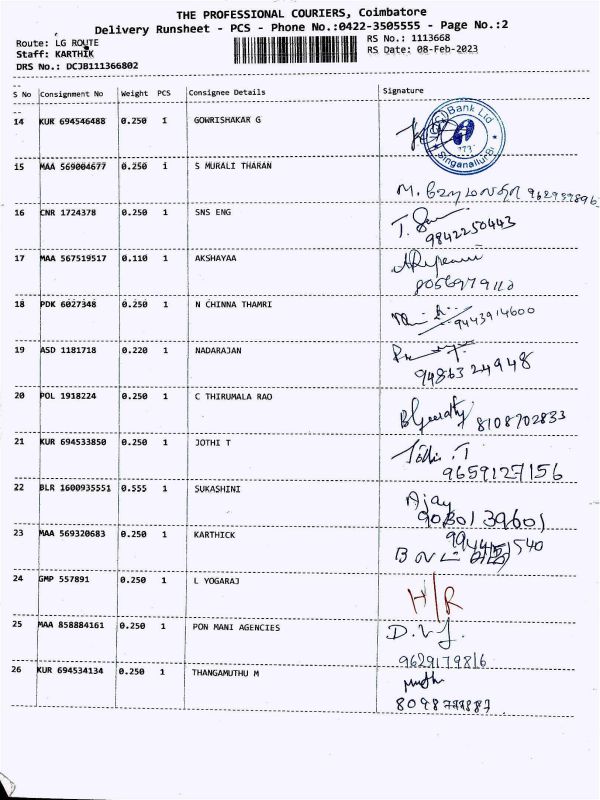 THE PROFESSIONAL COURIERS, Coimbatore
Delivery Runsheet - PCS - Phone No.:0422-3505555 - Page No.:2
Route: LG ROUTE
RS No.: 1113668
Staff: KARTHIK
RS Date: 08-Feb-2023
DRS No.: DCJB111366802
S No Consignment No Weight PCS Consignee Details Signature
14 KUR 694546488 0.250 1 GOWRISHAKAR G
Bank Ltd
Singanallur Br
15 MAA 569004677 0.250 1 S MURALI THARAN
16 CNR 1724378 0.250 1 SNS ENG
9842250443
17 MAA 567519517 0.110 1 AKSHAYAA
18 PDK 6027348 0.250 1 N CHINNA THAMRI
9443914600
19 ASD 1181718 0.220 1 NADARAJAN
9486324948
20 POL 1918224 0.250 1 C THIRUMALA RAO
8108702833
21 KUR 694533850 0.250 1 JOTHI T
Jothi .T
9659127156
22 BLR 1600935551 0.555 1 SUKASHINI
Ajay
9080139601
23 MAA 569320683 0.250 1 KARTHICK
24 GMP 557891 0.250 1 L YOGARAJ
H/R
25 MAA 858884161 0.250 1 PON MANI AGENCIES
9629179816
26 KUR 694534134 0.250 1 THANGAMUTHU M
8098777887